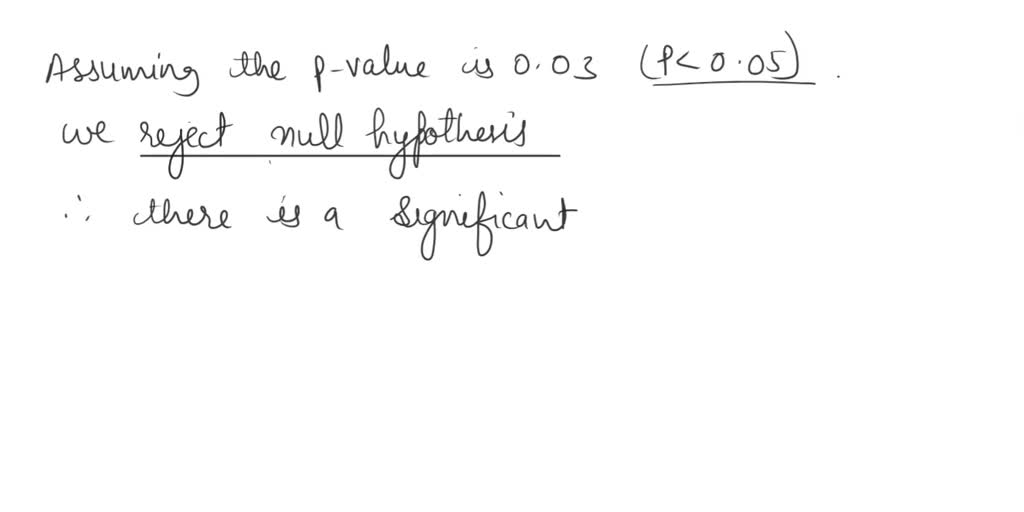 Assuming the p-value is 0.03 (P< 0.05).
we reject null hypothesis
∴ there is a significant